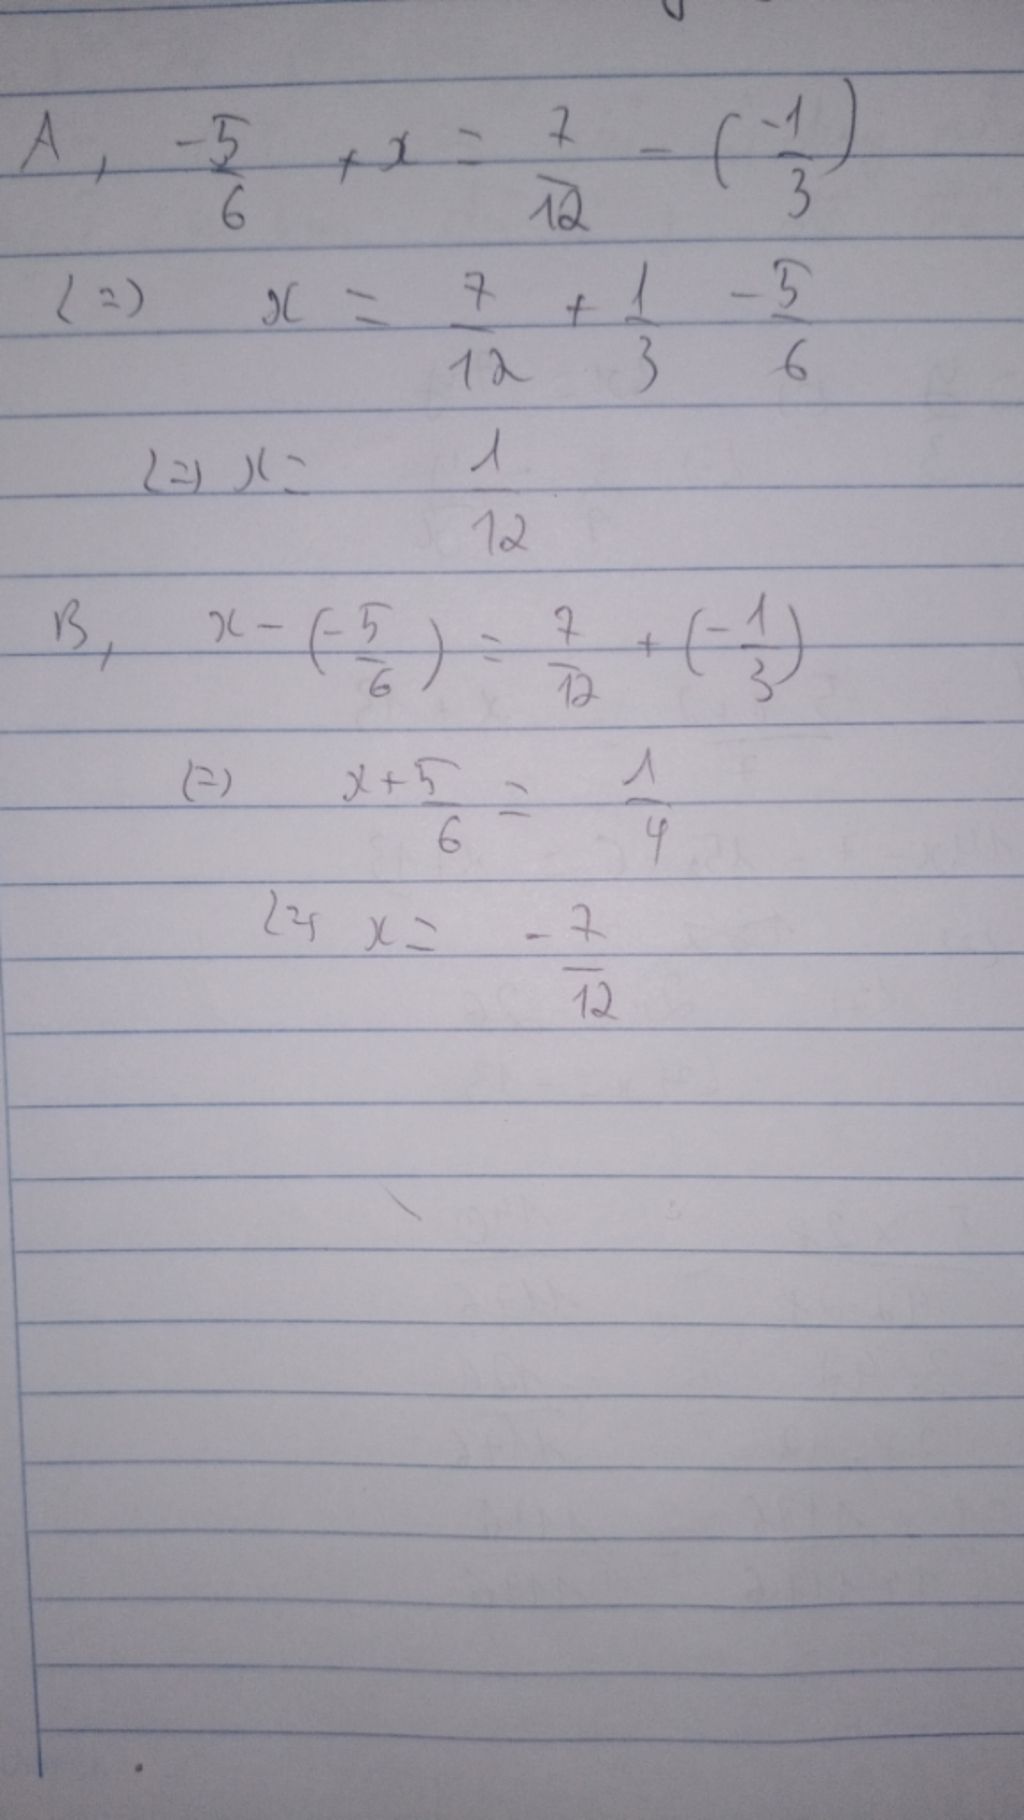 A, -5/6 + x = 7/12 - (-1/3)
(=) x = 7/12 + 1/3 - 5/6
(=) x = 1/12
B, x - (-5/6) = 7/12 + (-1/3)
(=) x + 5/6 = 1/4
(=) x = -7/12